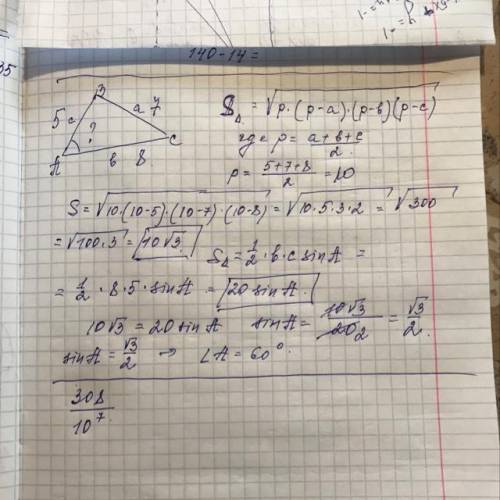 140-14=
35
B
5 c a 7
?
A в 8 C
S△ = √p·(p-a)·(p-b)(p-c)
где p = a+b+c/2
p = 5+7+8/2 = 10
S = √10·(10-5)·(10-7)·(10-8) = √10·5·3·2 = √300
= √100·3 = 10√3. S△ = 1/2·b·c sinA =
= 1/2·8·5·sinA = 20 sinA.
10√3 = 20 sinA sinA = 10√3/20 2 = √3/2.
sinA = √3/2 → ∠A = 60°.
308/10⁷